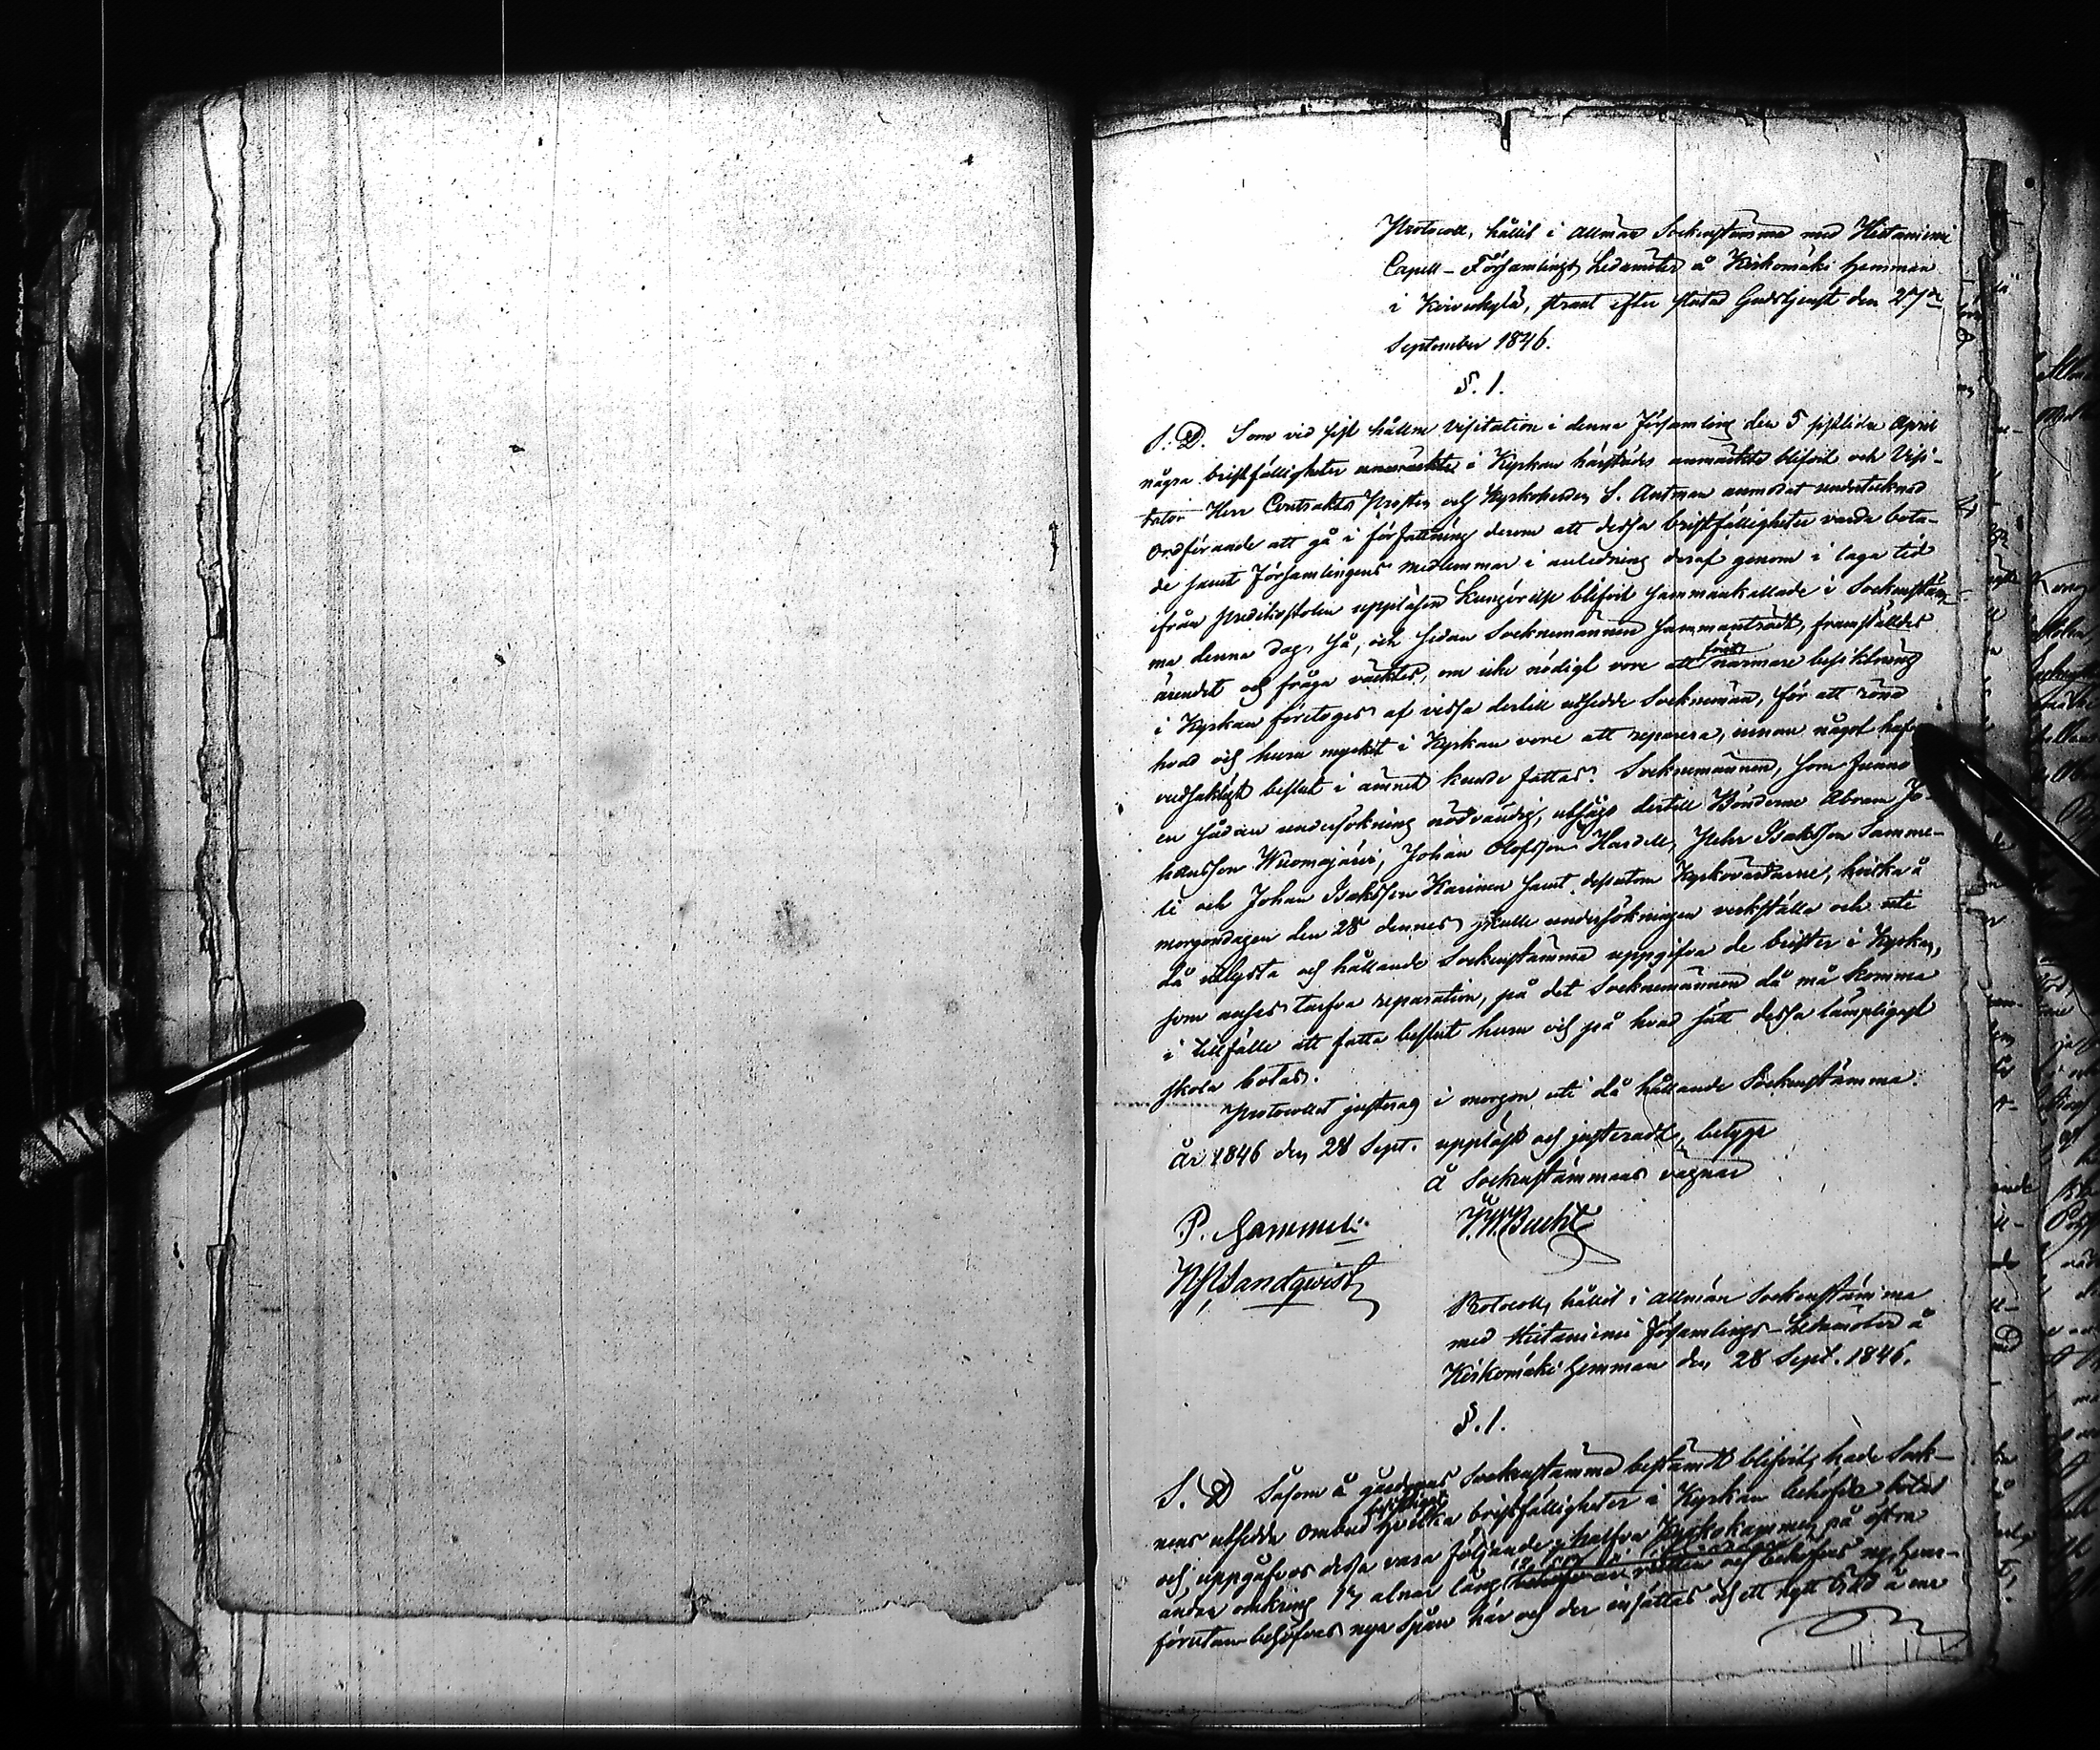 Protocoll, hållit i allmän Sockenstämma med Hietaniemi
Capell-Församlings Ledamöter å Keskomäki hemman
i Koivukylä, strax efter slutad Gudstjenst den 27de
September 1846.
§. 1.
S. D. Som vid sist hållne Visitation i denna Församling den 5 sistlidne April
några bristfälligheter i Kyrkan härstädes anmärkte blifvit och Visi-
tator Herr Contrakts Prosten och Kyrkoherden S. Antman anmodat undertecknad
Ordförande att gå i författning derom att dessa bristfälligheter varda bota-
de samt Församlingens medlemmar i anledning deraf genom i laga tid
ifrån predikstolen uppläsen Kungörelse blifvit sammankallade i Sockenstäm-
ma denna dag, så, och sedan Socknemännen sammanträdt, framställdes
ärendet och fråga väcktes, om icke nödigt vore att först närmare besiktning
i Kyrkan företoges af vissa dertill utsedde Socknemän, för att röna
hvad och huru mycket i Kyrkan vore att reparera, innan något
beslut i ämnet kunde fattas? Socknemännen, som funno
en sådan undersökning nödvändig, utsågo dertill Bönderne Abram Jo-
hansson Wuomajärvi, Johan Olofsson Hardell, Pehr Isaksson Samme-
li och Johan Isaksson Karinen samt dessutom Kyrkovärdarne, hvilka å
morgondagen den 28 dennes skulle undersökningen verkställa och uti
då utlysta och hållande Sockenstämma uppgifva de brister i Kyrkan,
som anses tarfva reparation, på det Socknemännen då må komma
i tillfälle att fatta beslut huru och på hvad sätt dessa lämpligast
skola botas.
Protocollet justeras i morgon uti då hållande Sockenstämma.
År 1846 den 28 Sept. uppläst och justeradt, betyga
Å Sockenstämmans vägnar
P. Sammeli. Bucht
Sandqwist
Protocoll, hållit i allmän Sockenstämma
med Hietaniemi Församlings-Ledamöter å
Keskomäki hemman den 28 Sept. 1846.
§. 1.
S. D. Såsom å gårdagens Sockenstämma bestämdt blifvit, hade Sock-
nens utsedde ombud hvilka bristfälligheter i Kyrkan behöfde botas
och uppgåfvos dessa vara följande: halfva på östra
ändan omkring 17 alnar lång och behöfves ny, hvar-
förutan behöfves nya spån här och der insättas och ett nytt bräd å ena